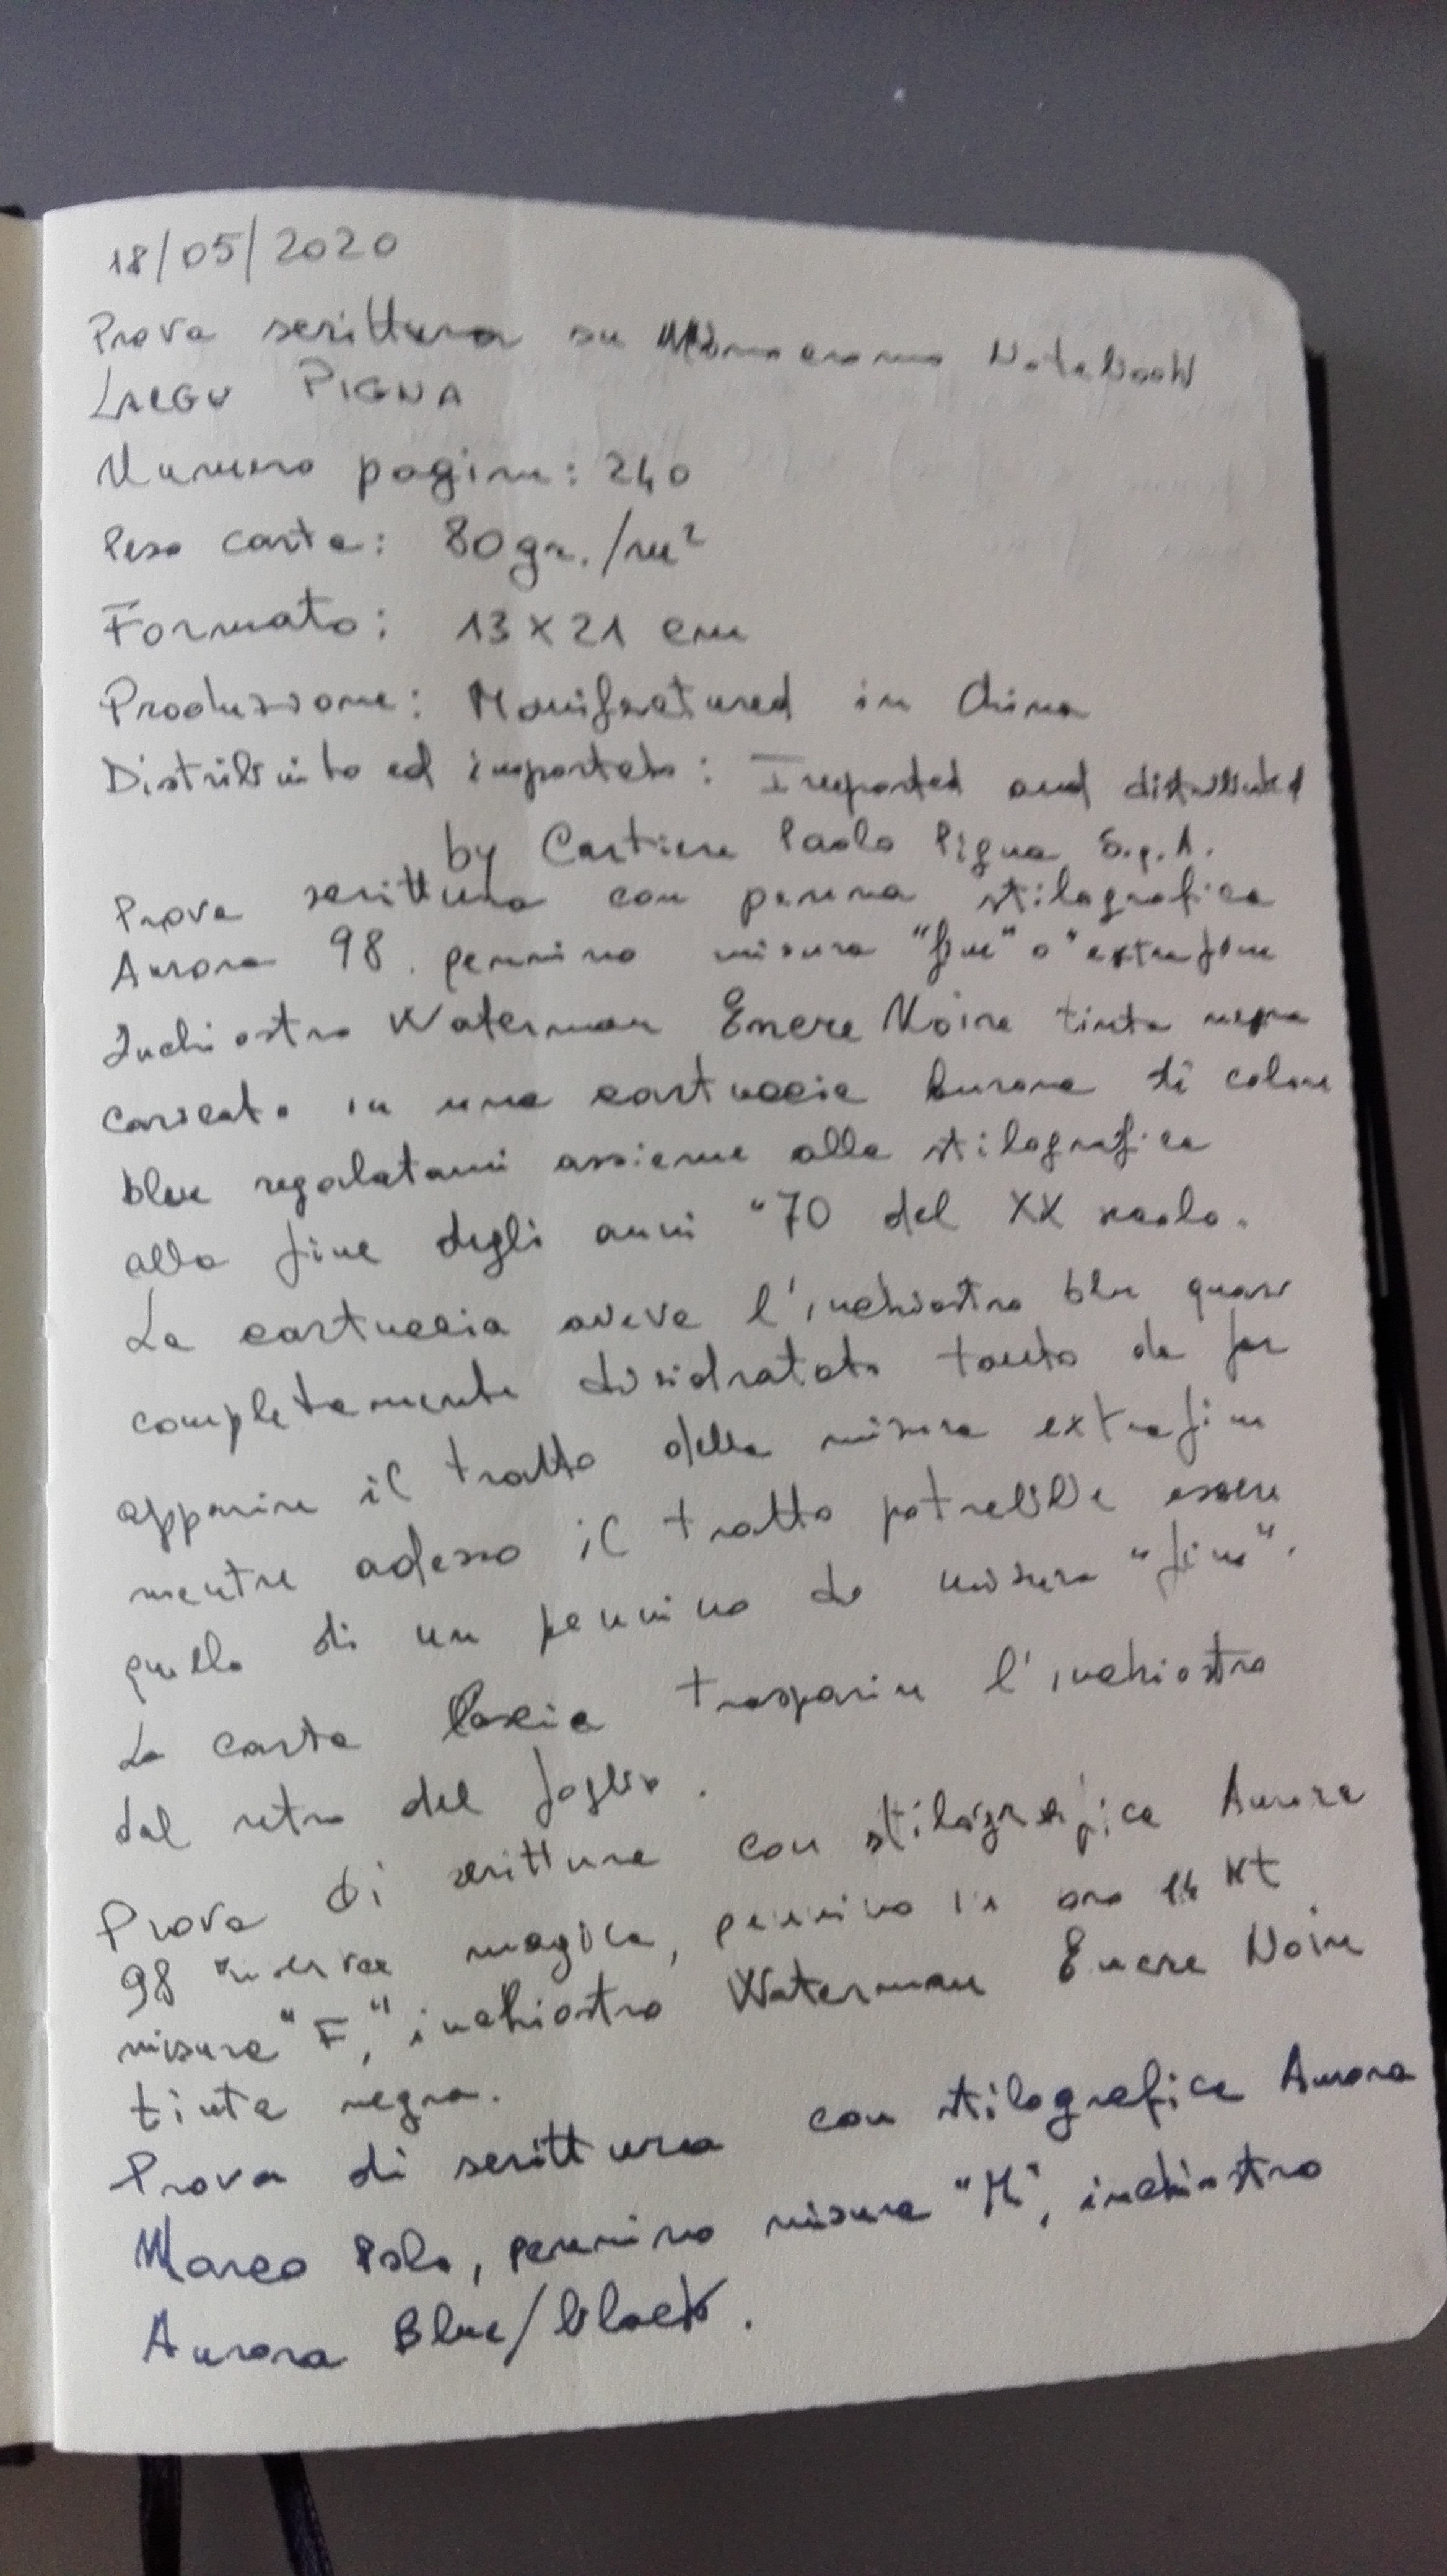 18/05/2020
Prova scrittura su Monocromo Notebook
Large PIGNA
Numero pagine: 240
Peso carta: 80gr./m²
Formato: 13x21 cm
Produzione: Manifactured in China
Distribuito ed importato: Imported and distributed
by Cartiere Paolo Pigna S.p.A.
Prova scrittura con penna stilografica
Aurora 98. pennino misura "fine" o "extrafine
Inchiostro Waterman Encre Noire tinta negra
caricato in una cartuccia Aurora di colore
blue regalatami assieme alla stilografica
alla fine degli anni "70 del XX secolo.
La cartuccia aveva l'inchiostro blu quasi
completamente disidratato tanto da far
apparire il tratto della misura extrafine
mentre adesso il tratto potrebbe essere
quello di un pennino di misura "fine".
La carta lascia trasparire l'inchiostro
dal retro del foglio.
Prova di scrittura con stilografica Aurora
98 riserva magica, pennino in oro 14 Kt
misura "F", inchiostro Waterman Encre Noire
tinta negra.
Prova di scrittura con stilografica Aurora
Marco Polo, pennino misura "M", inchiostro
Aurora Blue/black.